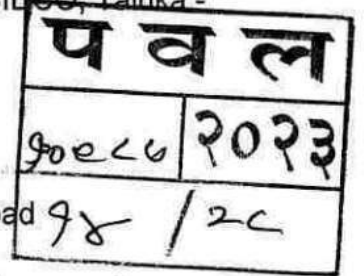 Taluka -
प व ल
१०९८७ २०२३
ad १४ / २८